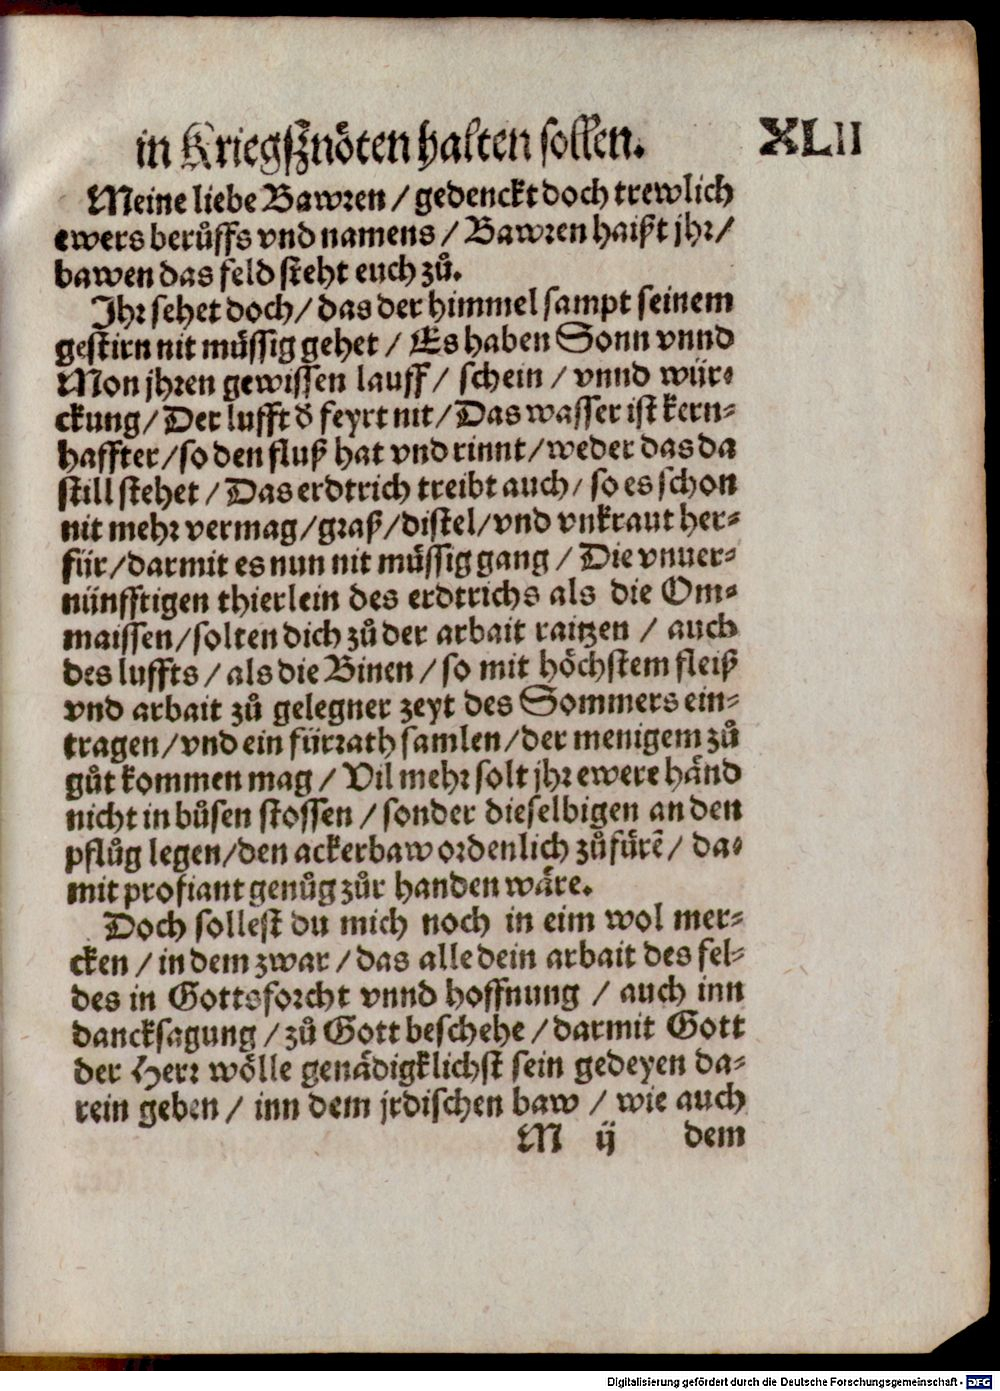 in Kriegsznöten halten sollen. XLII
Meine liebe Bawren / gedenckt doch trewlich
ewers berůffs vnd namens / Bawren haißt jhr /
bawen das feld steht euch zů.
Ihr sehet doch / das der himmel sampt seinem
gestirn nit müssig gehet / Es haben Sonn vnnd
Mon jhren gewissen lauff / schein / vnnd wür⸗
ckung / Der lufft d̕ feyrt nit / Das wasser ist kern⸗
haffter / so den fluß hat vnd rinnt / weder das da
still stehet / Das erdtrich treibt auch / so es schon
nit mehr vermag / graß / distel / vnd vnkraut her⸗
für / darmit es nun nit müssig gang / Die vnuer⸗
nünfftigen thierlein des erdtrichs als die Om⸗
maissen / solten dich zů der arbait raitzen / auch
des luffts / als die Binen / so mit höchstem fleiß
vnd arbait zů gelegner zeyt des Sommers ein⸗
tragen / vnd ein fürrath samlen / der menigem zů
gůt kommen mag / Vil mehr solt jhr ewere händ
nicht in bůsen stossen / sonder dieselbigen an den
pflůg legen / den ackerbaw ordenlich zůfürē / da⸗
mit profiant genůg zůr handen wäre.
Doch sollest du mich noch in eim wol mer⸗
cken / in dem zwar / das alle dein arbait des fel⸗
des in Gottsforcht vnnd hoffnung / auch inn
dancksagung / zů Gott beschehe / darmit Gott
der Herr wölle genädigklichst sein gedeyen da⸗
rein geben / inn dem jrdischen baw / wie auch
M ij dem
Digitalisierung gefördert durch die Deutsche Forschungsgemeinschaft - DFG